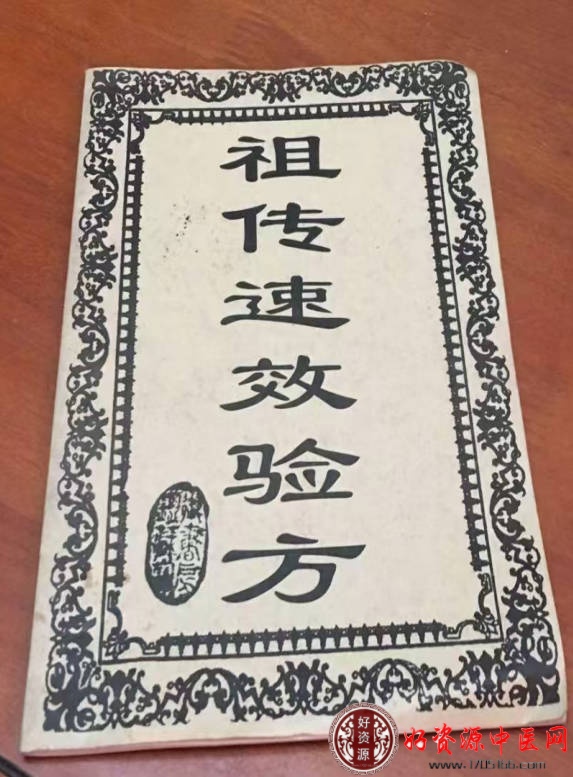 祖传速效验方
好资源
好资源中医网